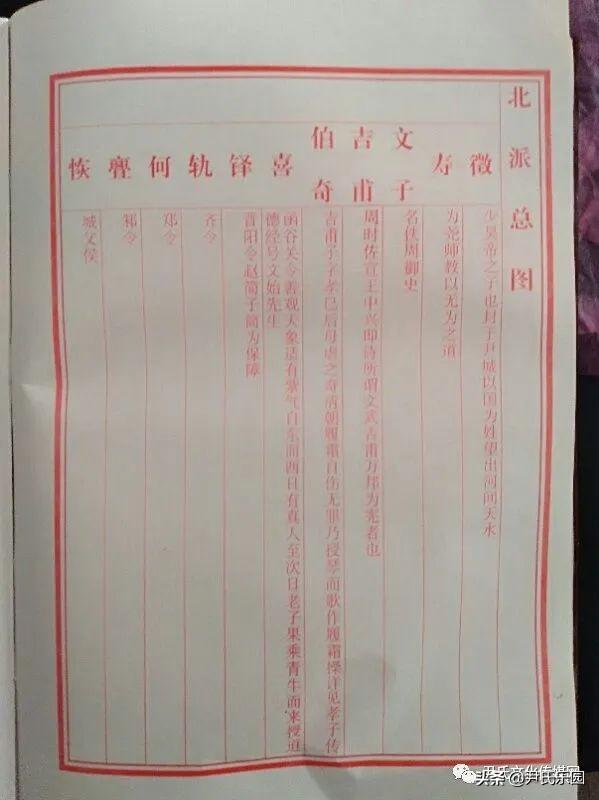 北派总图
徵
少昊帝之子也封于尹城以国为姓望出河间天水
寿
为尧师教以无为之道
文子
名佚周御史
吉甫
周时佐宣王中兴即诗所谓文武吉甫万邦为宪者也
伯奇
吉甫子子孝已后母虐之奇清朝履霜自伤无罪乃授琴而歌作履霜操详见孝子传
喜
函谷关令善观天象适有紫气自东而西曰有真人至次日老子果乘青牛而来授道
德经号文始先生
铎
晋阳令赵简子简为保障
轨
齐令
何
郑令
邾令
恢
城父侯
尹氏文化传媒网
头条 @尹氏乐园